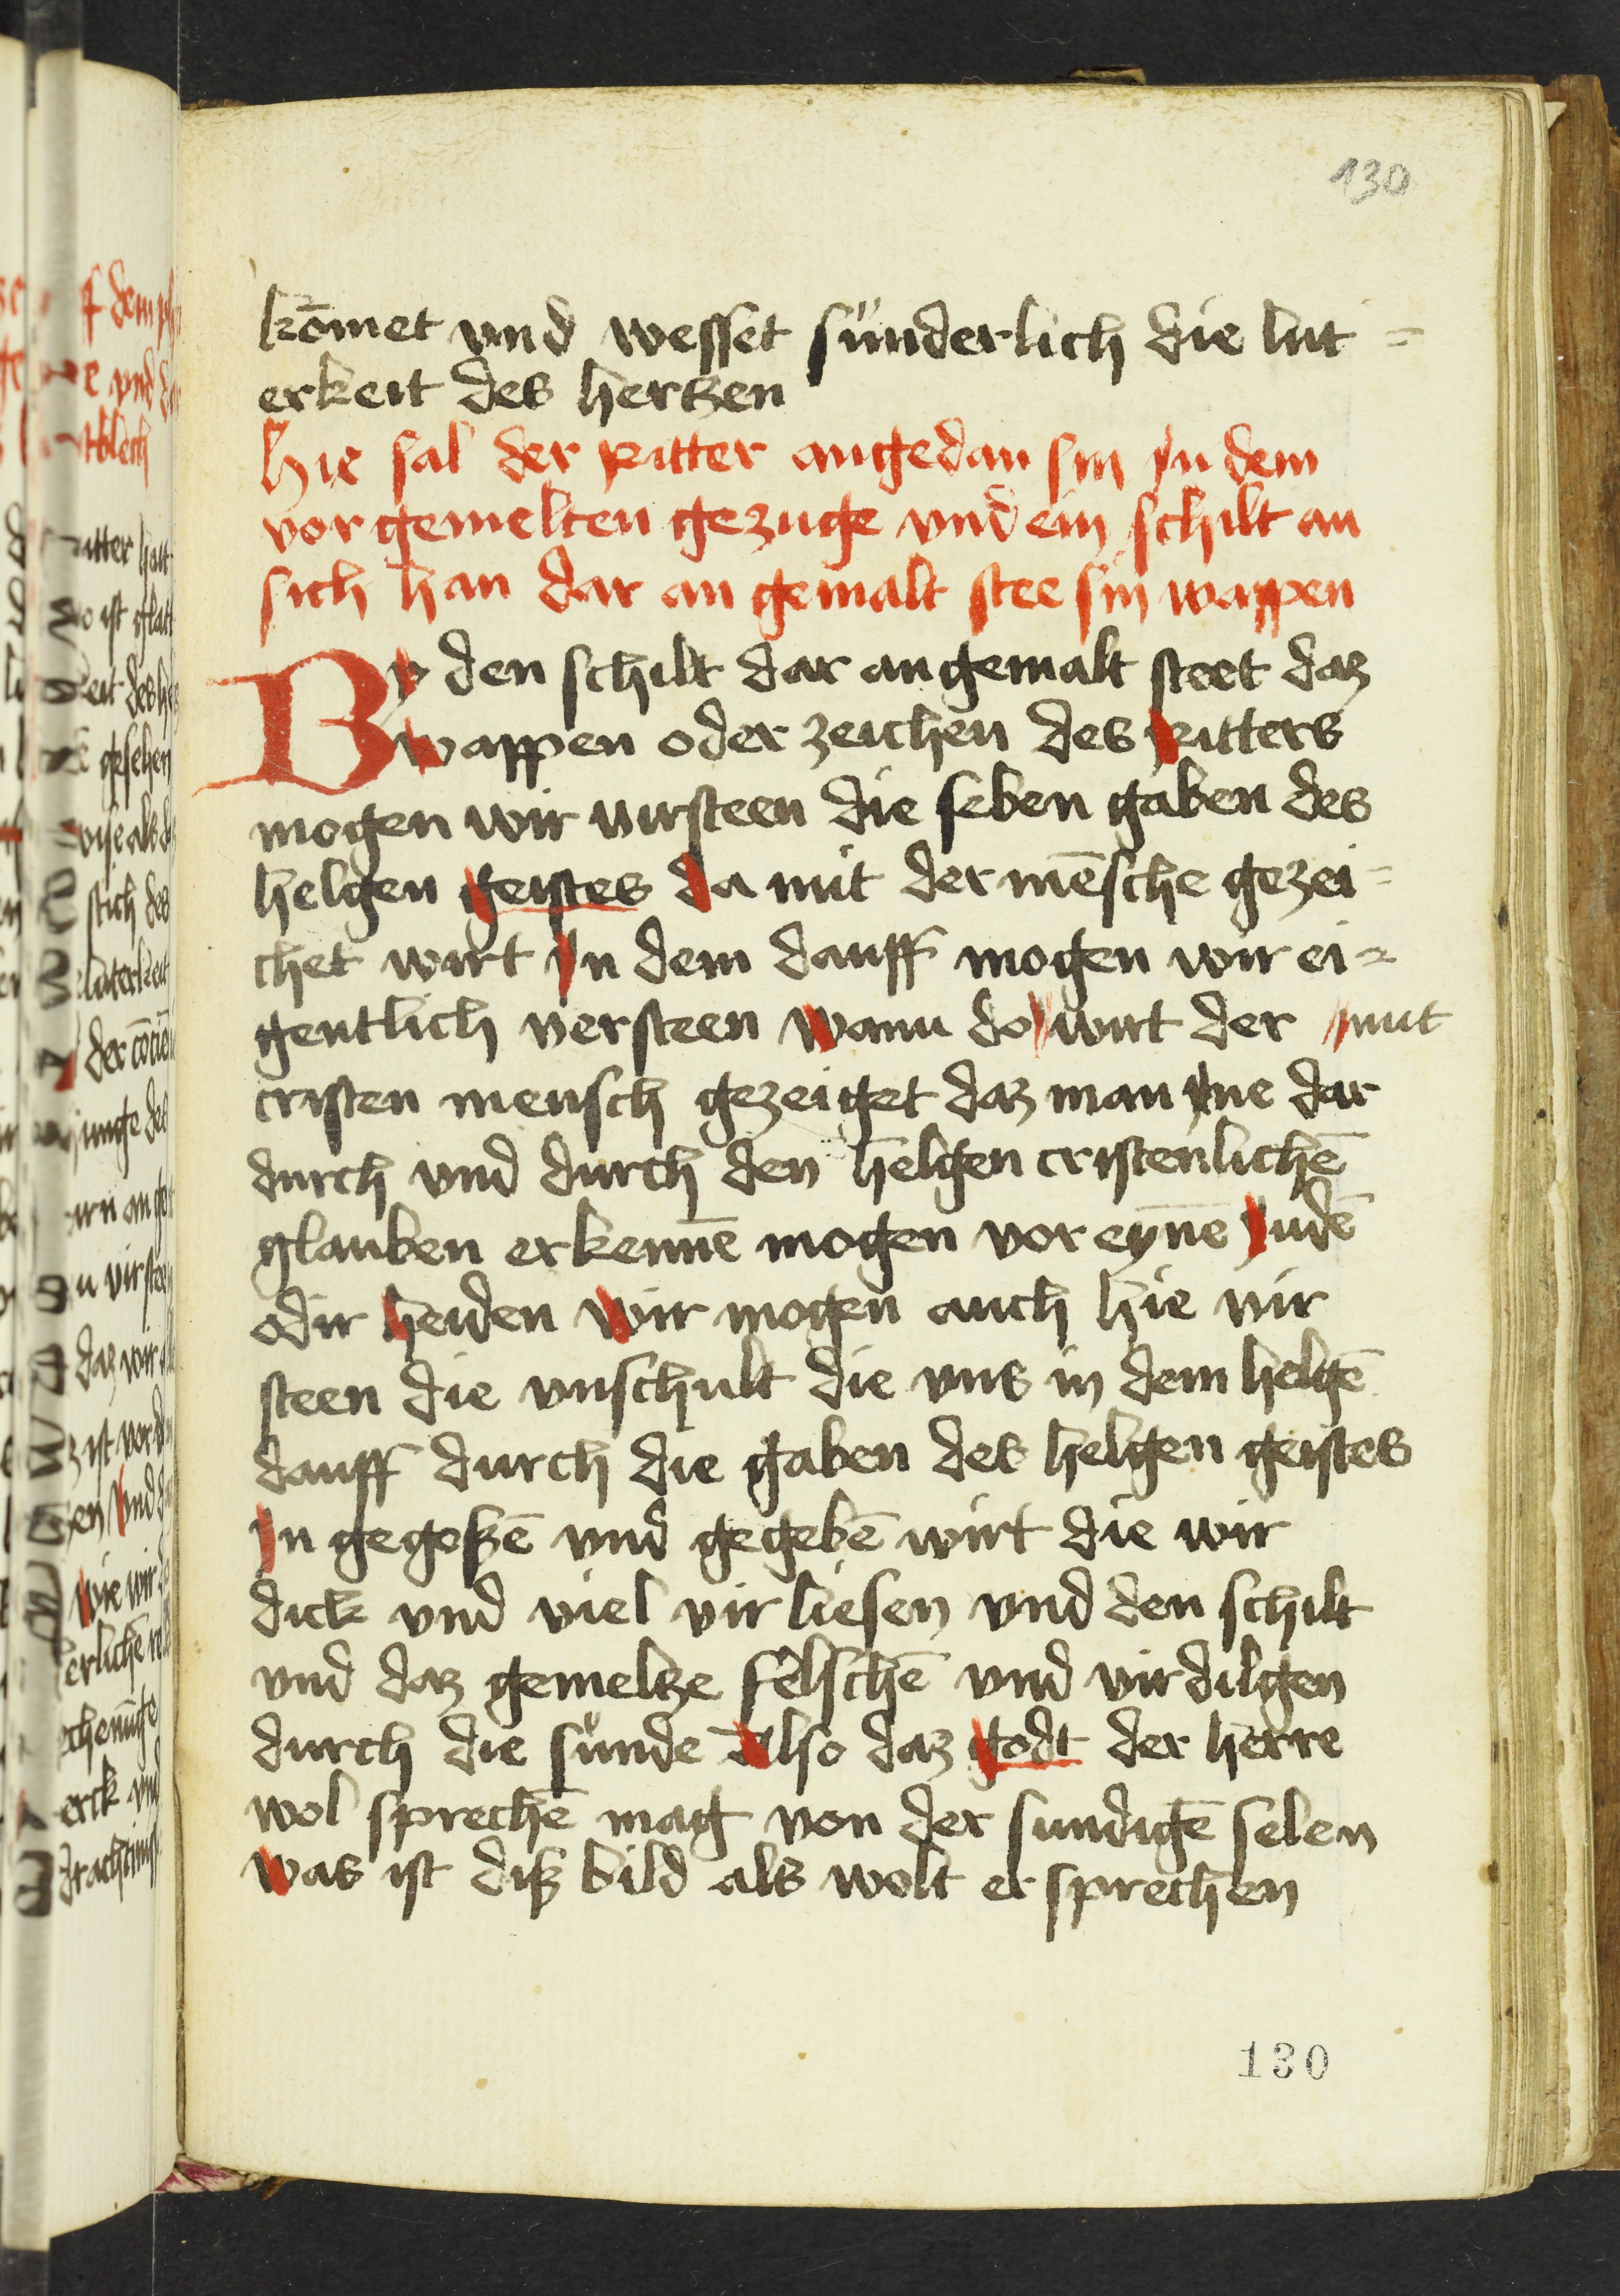 130
kōmet vnd wesset sünderlich die lut =
erkeit des hertzen
Hie sal der ritter angedan sin in dem
vor gemelten gezuge vnd ein schilt an
sich han dar an gemalt stee sin wappen
By den schilt dar an gemalt steet daz
wappen oder zeichen des ritters
mogen wir virsteen die seben gaben des
helgen geistes da mit der mēsche gezei=
chet wirt In dem dauff mogen wir ei=
gentlich versteen wann do wirt der mit
cristen mensch gezeiget daz man yne dar
durch vnd durch den helgen cristenlichē
glauben erkennē mogen vor eynē Judē
odir heiden wir mogen auch hie vir
steen die vnschult die vns in dem helgē
dauff durch die gaben des helgen geistes
In gegoßē vnd gegebē wirt die wir
dick vnd viel vir liesen vnd den schilt
vnd daz gemeltze felschē vnd vir dilgen
durch die sünde Also daz godt der herre
wol sprechē mag von der sundigē selen
Was ist diß bild als wolt er sprechen
130